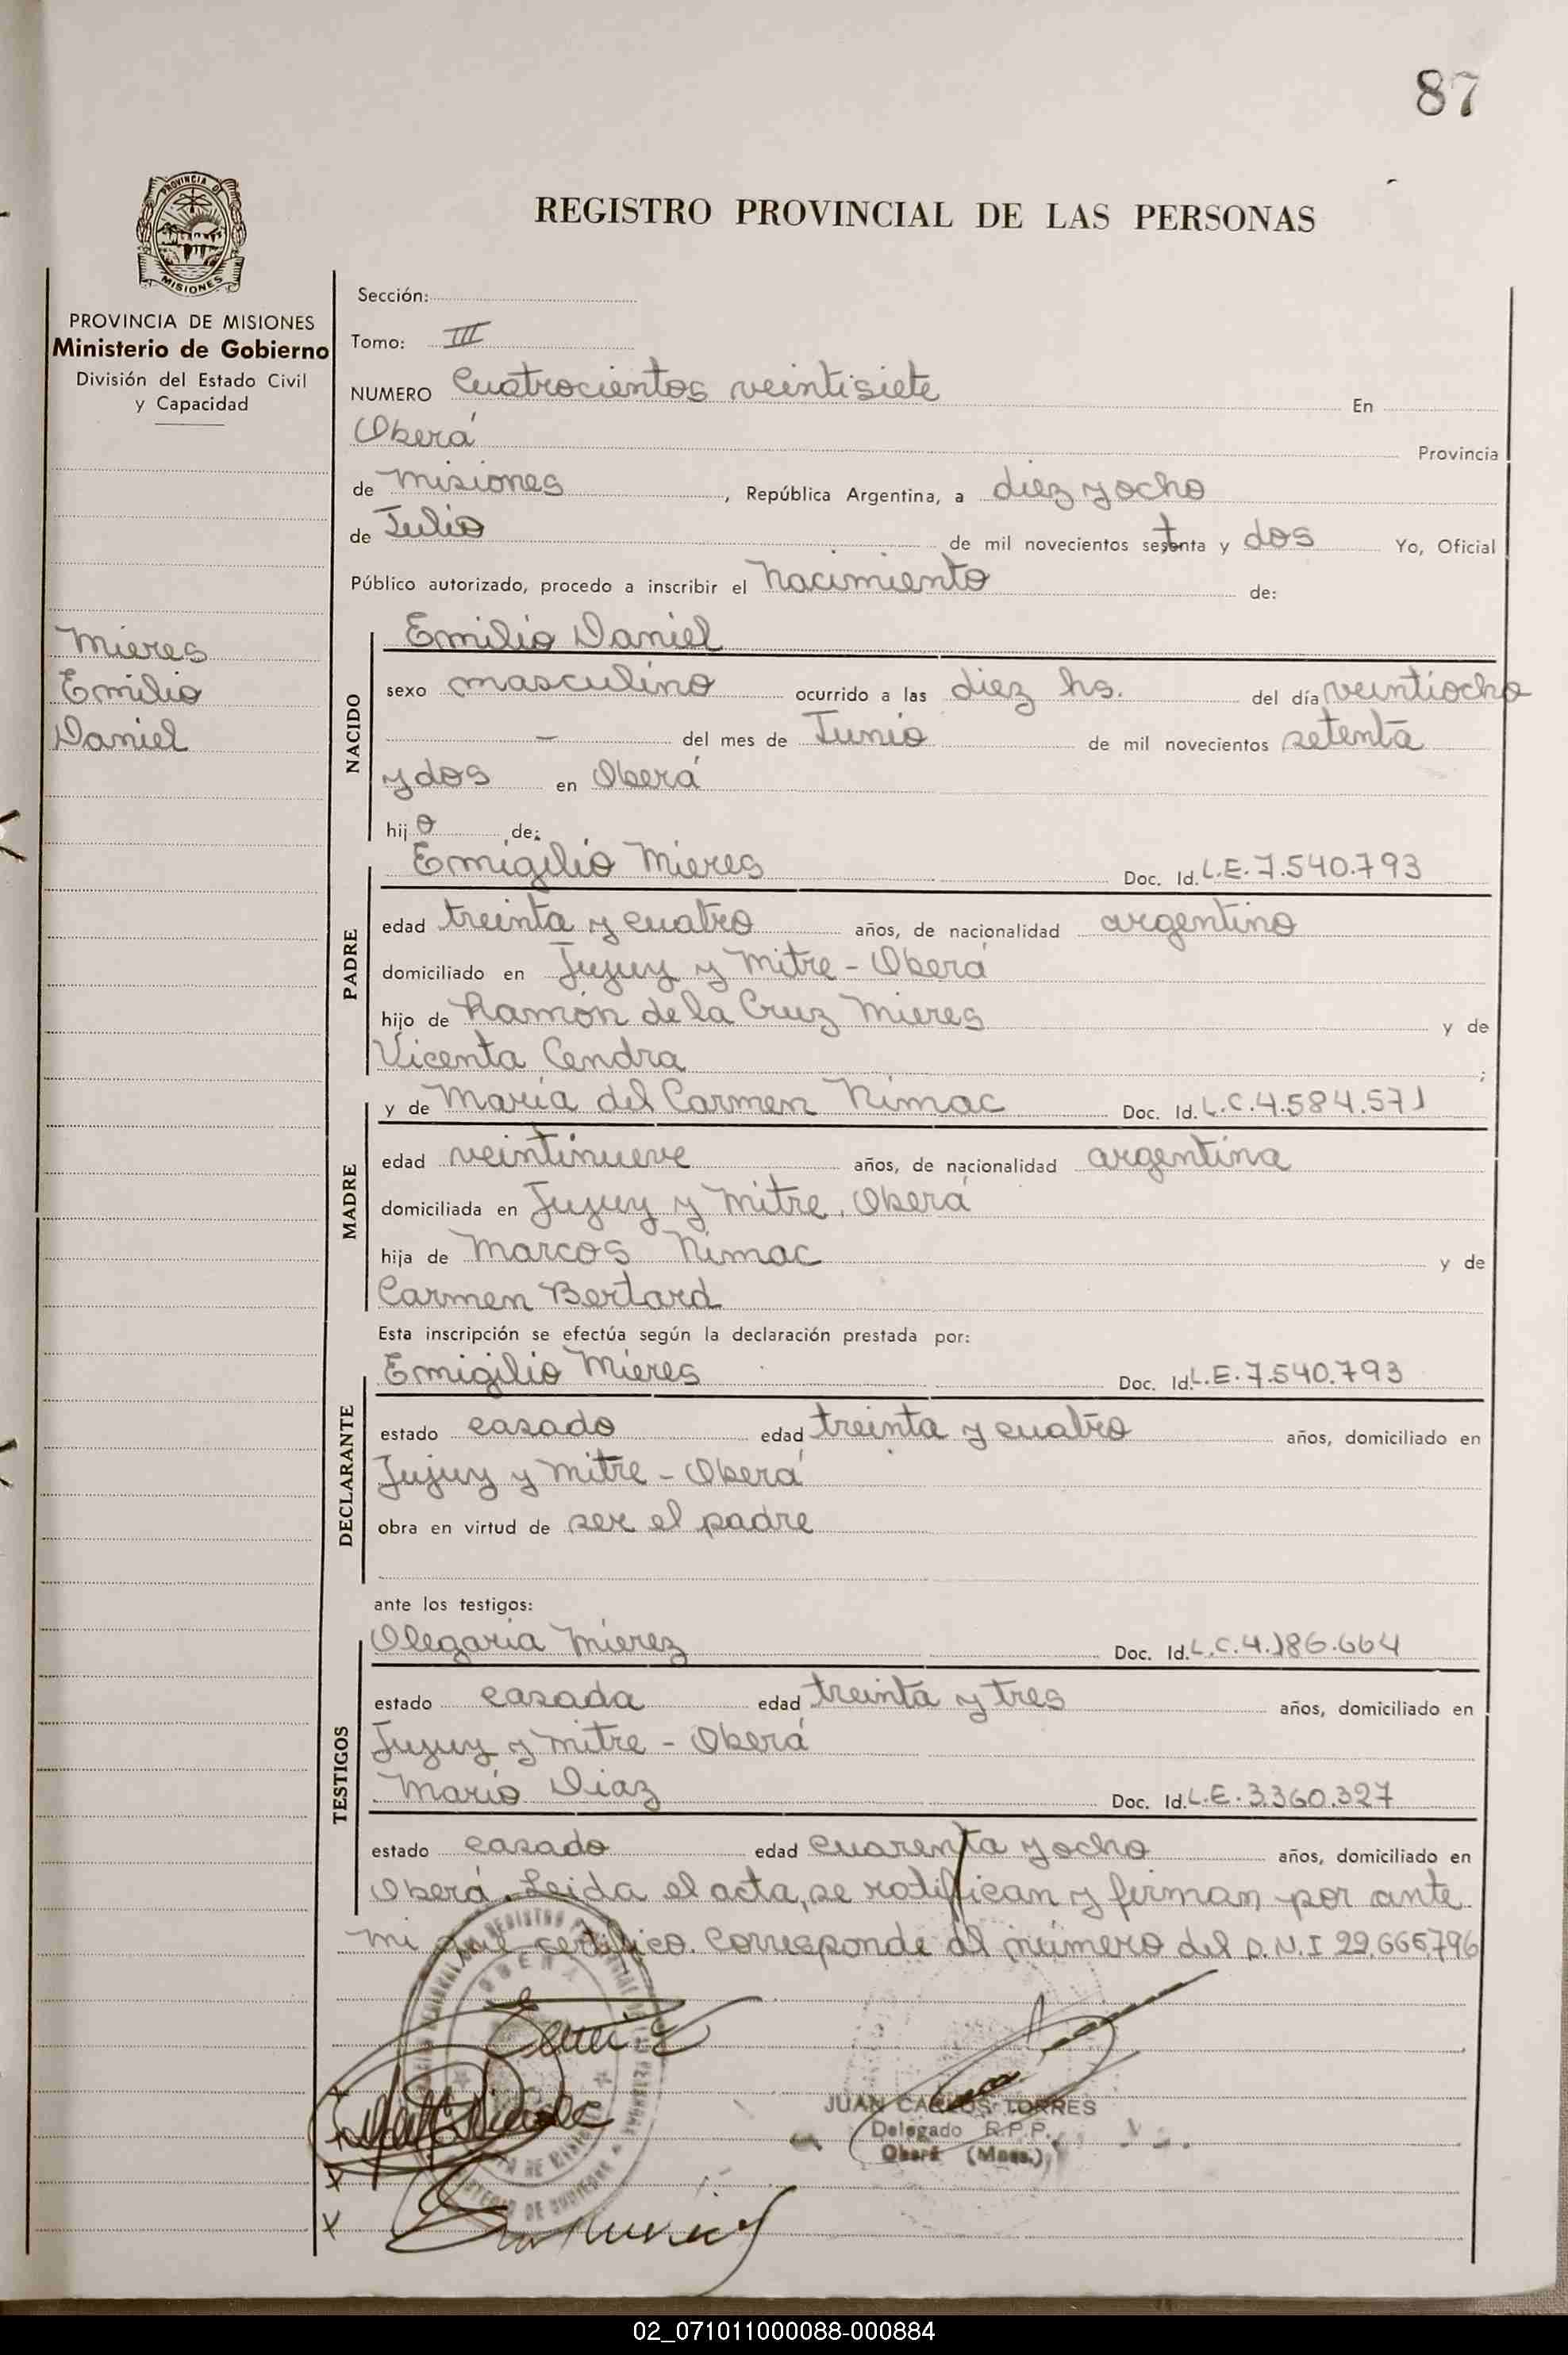 87
PROVINCIA DE
MISIONES
REGISTRO PROVINCIAL DE LAS PERSONAS
PROVINCIA DE MISIONES
Ministerio de Gobierno
División del Estado Civil
y Capacidad
Mieres
Emilio
Daniel
Sección:
Tomo: III
NUMERO Cuatrocientos veintisiete En
Oberá Provincia
de Misiones, República Argentina, a diez y ocho
de Julio de mil novecientos setenta y dos Yo, Oficial
Público autorizado, procedo a inscribir el Nacimiento de:
NACIDO
Emilio Daniel
sexo masculino ocurrido a las diez hs. del día veintiocho
— del mes de Junio de mil novecientos setenta
y dos en Oberá
hijo de:
PADRE
Emigilio Mieres Doc. Id. L.E. 7.540.793
edad treinta y cuatro años, de nacionalidad argentino
domiciliado en Jujuy y Mitre - Oberá
hijo de Ramón de la Cruz Mieres y de
Vicenta Cendra ;
MADRE
y de María del Carmen Nimac Doc. Id. L.C. 4.584.571
edad veintinueve años, de nacionalidad argentina
domiciliada en Jujuy y Mitre. Oberá
hija de Marcos Nimac y de
Carmen Bertard
Esta inscripción se efectúa según la declaración prestada por:
DECLARANTE
Emigilio Mieres Doc. Id. L.E. 7.540.793
estado casado edad treinta y cuatro años, domiciliado en
Jujuy y Mitre - Oberá
obra en virtud de ser el padre
ante los testigos:
TESTIGOS
Olegaria Mierez Doc. Id. L.C. 4.186.664
estado casada edad treinta y tres años, domiciliado en
Jujuy y Mitre - Oberá
Mario Diaz Doc. Id. L.E. 3.360.327
estado casado edad cuarenta y ocho años, domiciliado en
Oberá. Leida el acta, se ratifican y firman por ante
mi que certifico. Corresponde al número del D.N.I 22.665.796
JUAN CARLOS TORRES
Delegado R.P.P.
Oberá (Mnes.)
02_071011000088-000884